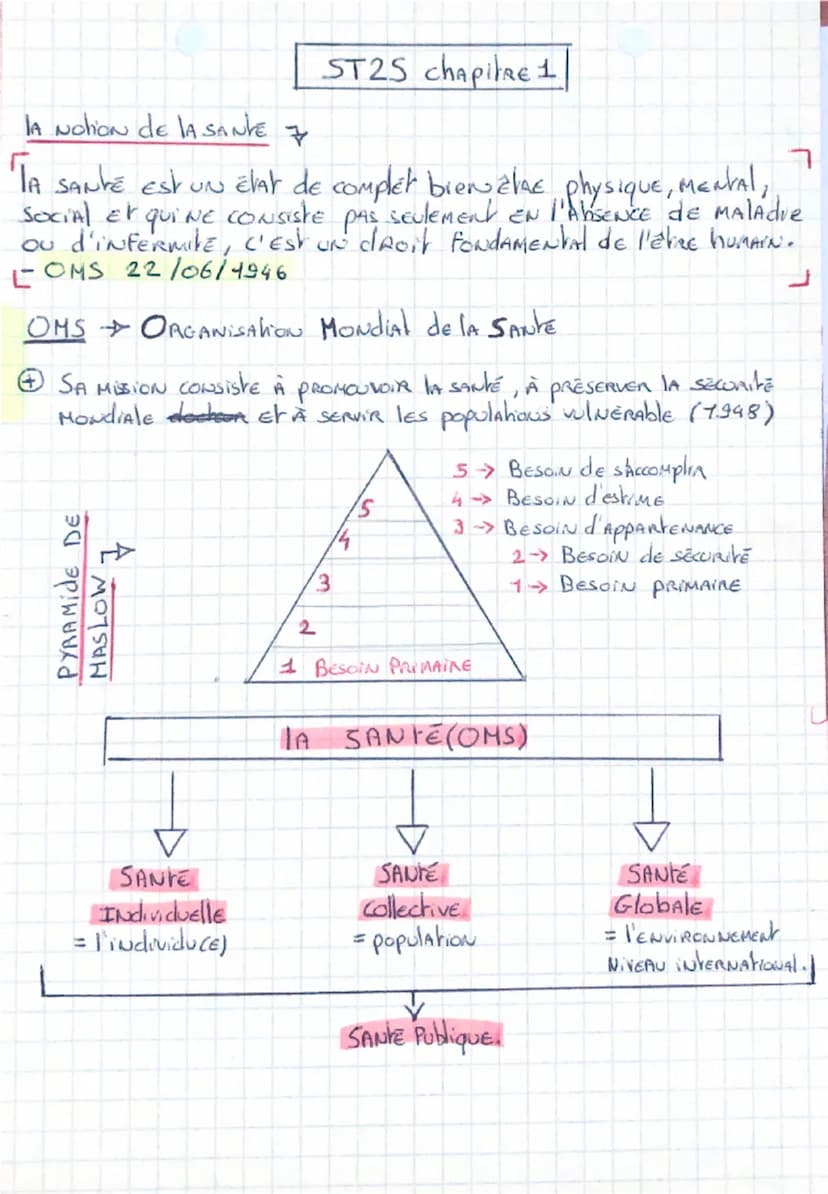 ST2S chapitre 1
la notion de la santé
la santé est un état de complét bien être physique, mental,
social et qui ne consiste pas seulement en l'absence de maladie
ou d'infermité, c'est un droit fondamental de l'être humain.
- OMS 22/06/1946
OMS → Organisation Mondial de la Santé
+ Sa mission consiste à promouvoir la santé, à préserver la sécurité
mondiale et à servir les populations vulnérable (1948)
5 → Besoin de s'accomplir
4 → Besoin d'estime
3 → Besoin d'appartenance
2 → Besoin de sécurité
1 → Besoin primaire
PYRAMIDE DE
MASLOW
5
4
3
2
1 Besoin Primaire
la SANTÉ (OMS)
Santé
Individuelle
= l'individu(e)
Santé
Collective
= population
Santé
Globale
= l'environnement
niveau international.
Santé Publique.